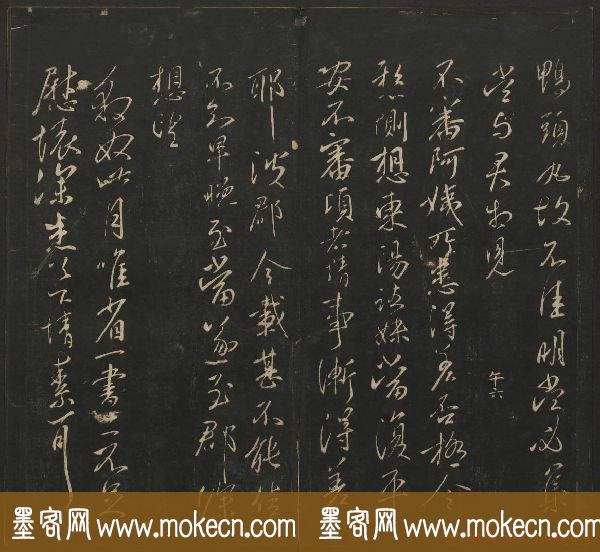 鴨頭丸故不佳明當必集
當與君相見
午六
不審阿姨所患得差否極令
懸惻想東陽諸妹當復平
安不審頃者情事漸得差
耶 郡今載甚不能佳
不知早晚至當遂至郡深
想望
奴此月唯省一書不足
慰懷深 以下情素
墨客网 www.mokecn.com 墨客网 www.mokecn.com